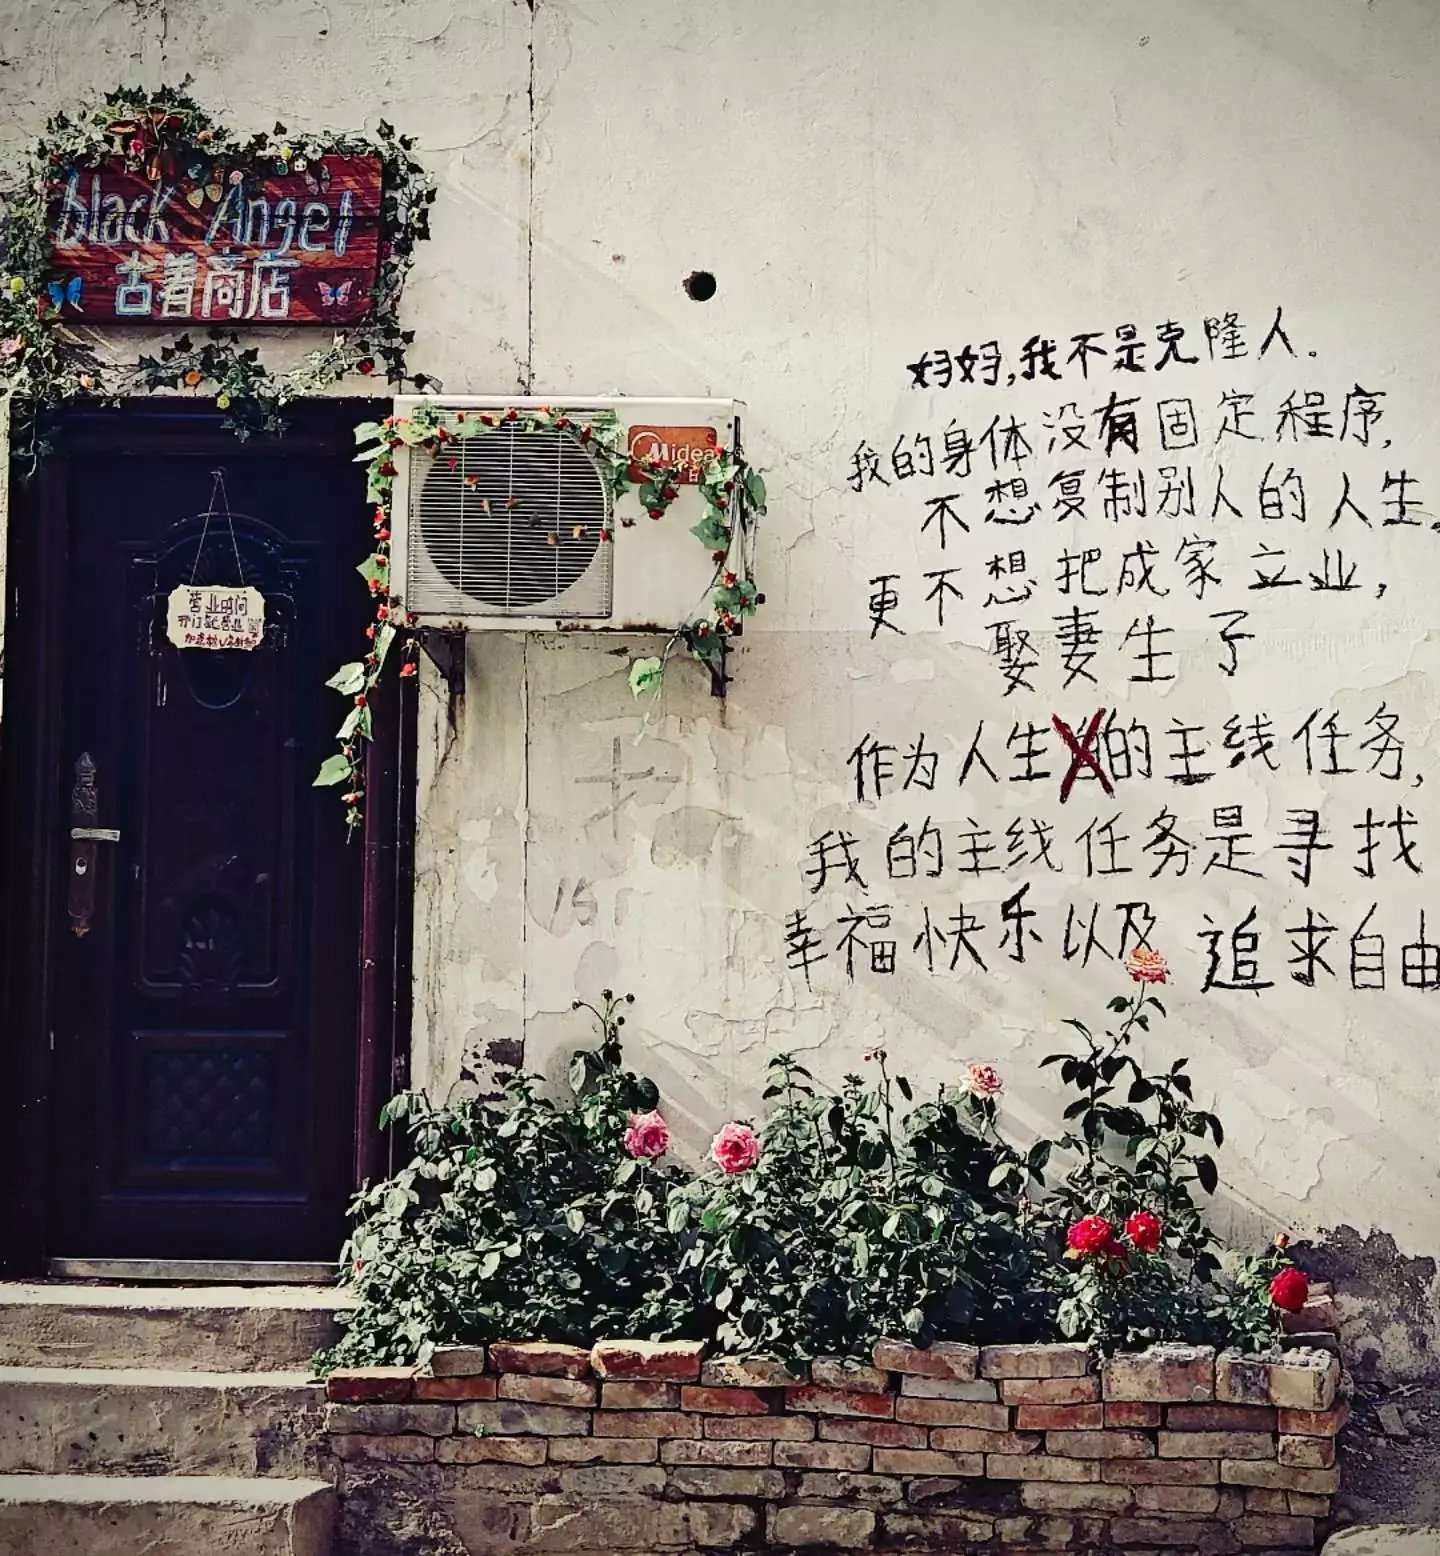 black Angel
古着商店
Midea
营业时间
开门就营业
妈妈,我不是克隆人。
我的身体没有固定程序,
不想复制别人的人生。
更不想把成家立业,
娶妻生子
作为人生的主线任务,
我的主线任务是寻找
幸福快乐以及追求自由